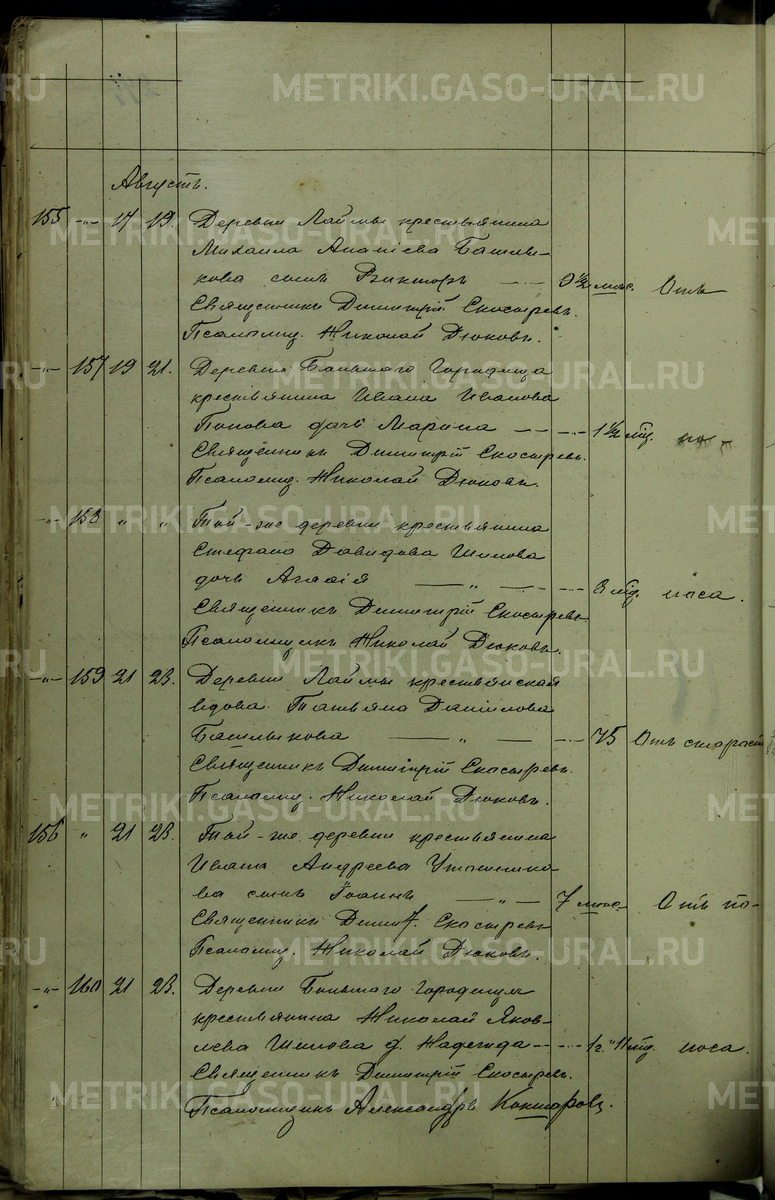 METRIKI.GASO-URAL.RU
Августъ.
155 -„- 17 19. Деревни Лаймы крестьянина
Михаила Ананіева Башлы-
кова сынъ Викторъ — 9 1/2 мѣс. Отъ
Священникъ Димитрій Скосыревъ.
Псаломщ. Николай Дюковъ.
-„- 157 19 21. Деревни Большого Городища
крестьянина Ивана Иванова
Попова дочь Марина — 1 1/2 мѣц. по-
Священникъ Димитрій Скосыревъ.
Псаломщ. Николай Дюковъ.
-„- 158 „ „ Той-же деревни крестьянина
Стефана Давидова Шилова
дочь Аглаія — „ — 8 мѣц. носа.
Священникъ Димитрій Скосыревъ.
Псаломщикъ Николай Дюковъ.
-„- 159 21 23. Деревни Лаймы крестьянская
вдова Татьяна Данилова
Башлыкова — „ — 75 Отъ старости
Священникъ Димитрій Скосыревъ.
Псаломщ. Николай Дюковъ.
156 „ 21 23. Той-же деревни крестьянина
Ивана Андреева
ва сынъ Іоаннъ — „ — 7 мѣс. Отъ по-
Священникъ Димит. Скосыревъ
Псаломщ. Николай Дюковъ.
-„- 160 21 23. Деревни Большого Городища
крестьянина Николай Яков-
лева Шилова д. Надежда — 1 г. 11 мѣц. носа.
Священникъ Димитрій Скосыревъ.
Псаломщикъ Александръ